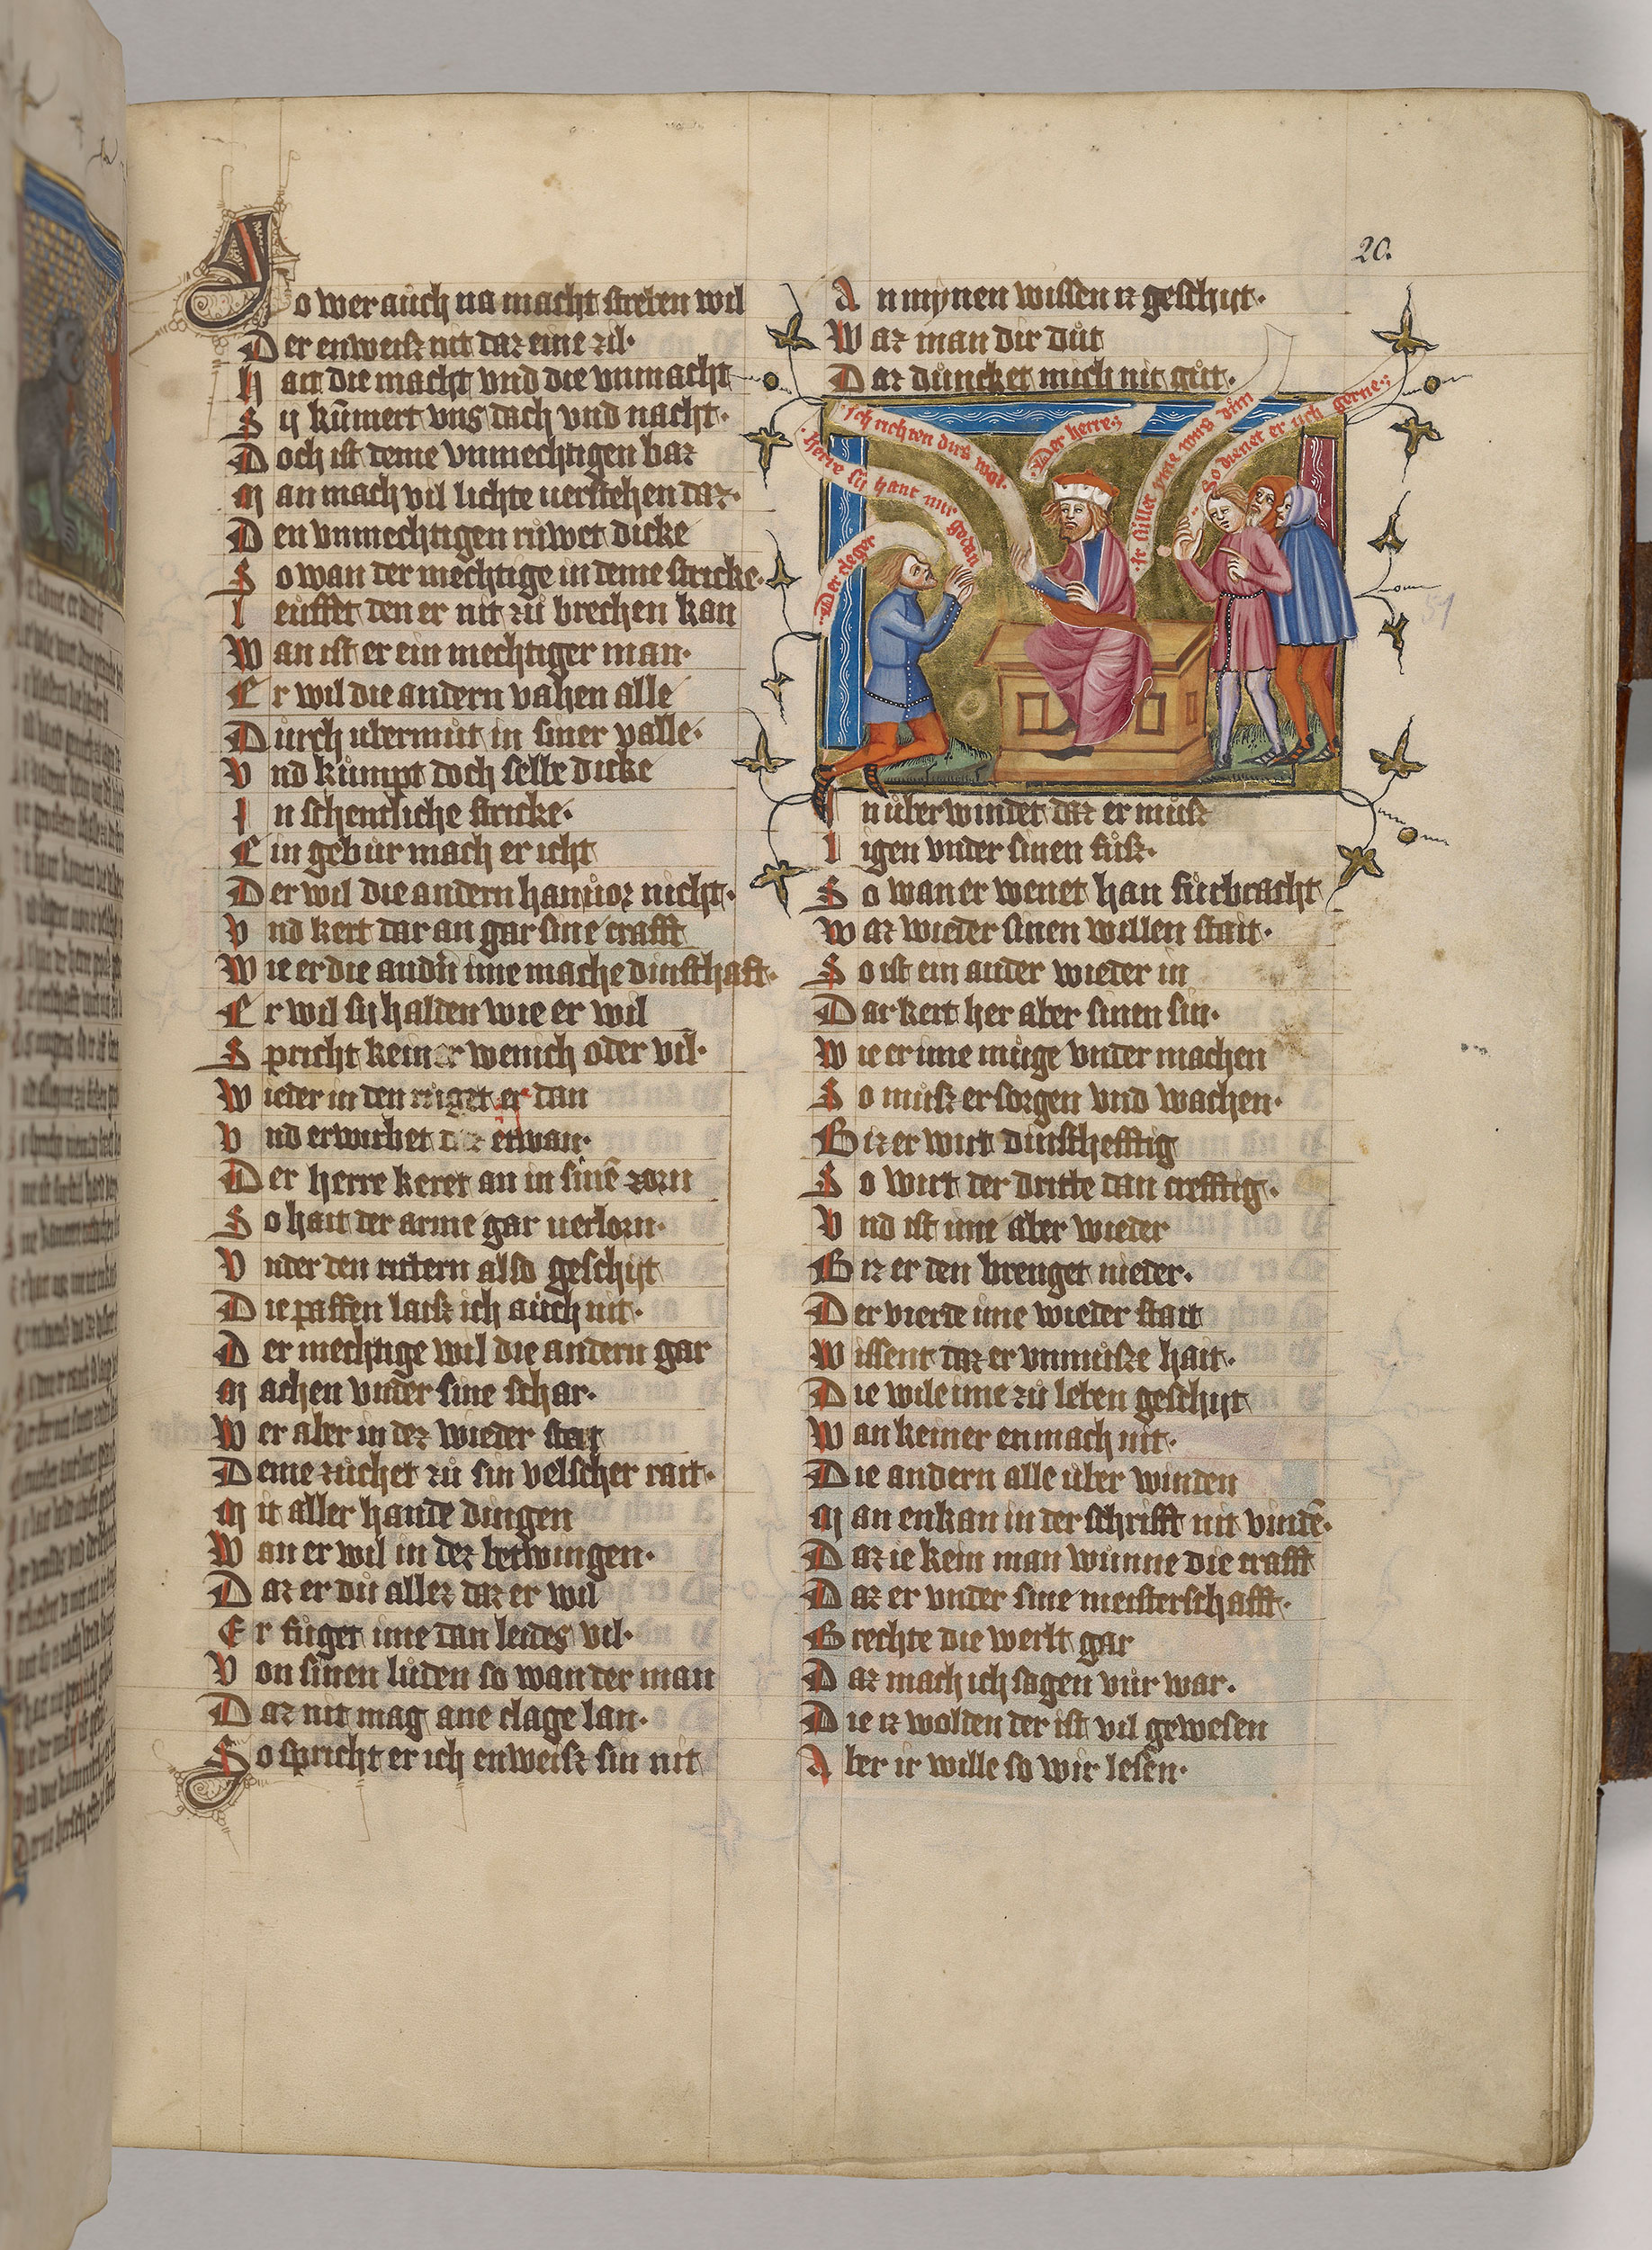 So wer auch na macht streben wil
Der enweisz nit daz eine zil·
Hait die macht vnd die vnmacht
Sy kümert vns dach vnd nacht·
Doch ist deme vnmechtigen baz
Man mach vil lichte uerstehen daz·
Den vnmechtigen rüwet dicke
So wan der mechtige in deme stricke·
leufft den er nit zů brechen kan
Wan ist er ein mechtiger man·
Er wil die andern vahen alle
Durch ubermůt in siner valle·
Vnd kůmpt doch selbe dicke
In schentliche stricke·
Ein gebůr mach er icht
Der wil die andern han uor nicht·
Vnd kert dar an gar sine crafft
Wie er die andn̄ ime mache dinsthaft·
Er wil sy halden wie er wil
Spricht keiner wenich oder vil·
Wieder in den růget er dan
Vnd erwirbet daz etwan·
Der herre keret an in sinē zorn
So hait der arme gar uerlorn·
Vnder den rittern also geschyt
Die paffen lasz ich auch nit·
Der mechtige wil die andern gar
Machen vnder sine schar·
Wer aber in dez wieder stat
Deme zuchet zů sin velscher rait·
Mit aller hande dingen
Wan er wil in dez betwingen·
Daz er dů allez daz er wil
Er fůget ime dan leides vil·
Von sinen lůden so wan der man
Daz nit mag ane clage lan·
So spricht er ich enweisz sin nit
20.
An mynen wissen iz geschyt·
Waz man dir důt
Daz důncket mich nit gůt·
Ich richten dirs wol·
Der herre
Ir sullet ime wus důn
So dienet er uch gerne
Herre sy hant mir gedan
Der cleger
51
In uberwindet daz er můsz
ligen vnder sinen fůsz·
So wan er wenet han fůrbracht
Waz wieder sinen willen stait·
So ist ein ander wieder in
Dar kert her aber sinen sin·
Wie er ime můge vnder machen
So můsz er sorgen vnd wachen·
Biz er wirt dinsthefftig
So wirt der dritte dan crefftig·
Vnd ist ime aber wieder
Biz er den brenget nieder·
Der vierde ime wieder stait
Wissent daz er vnmůsze hait·
Die wile ime zů leben geschyt
Wan keiner enmach nit·
Die andern alle uber winden
Man enkan in der schrifft nit vindē·
Daz ie kein man wůnne die crafft
Daz er vnder sine meisterschafft·
Brechte die werlt gar
Daz mach ich sagen vůr war·
Die iz wolden der ist vil gewesen
Aber ir wille so wir lesen·